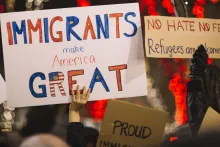 IMMIGRANTS
make
America
GREAT
NO HATE NO FE
Refugees are
PROUD
IMMIGRANT